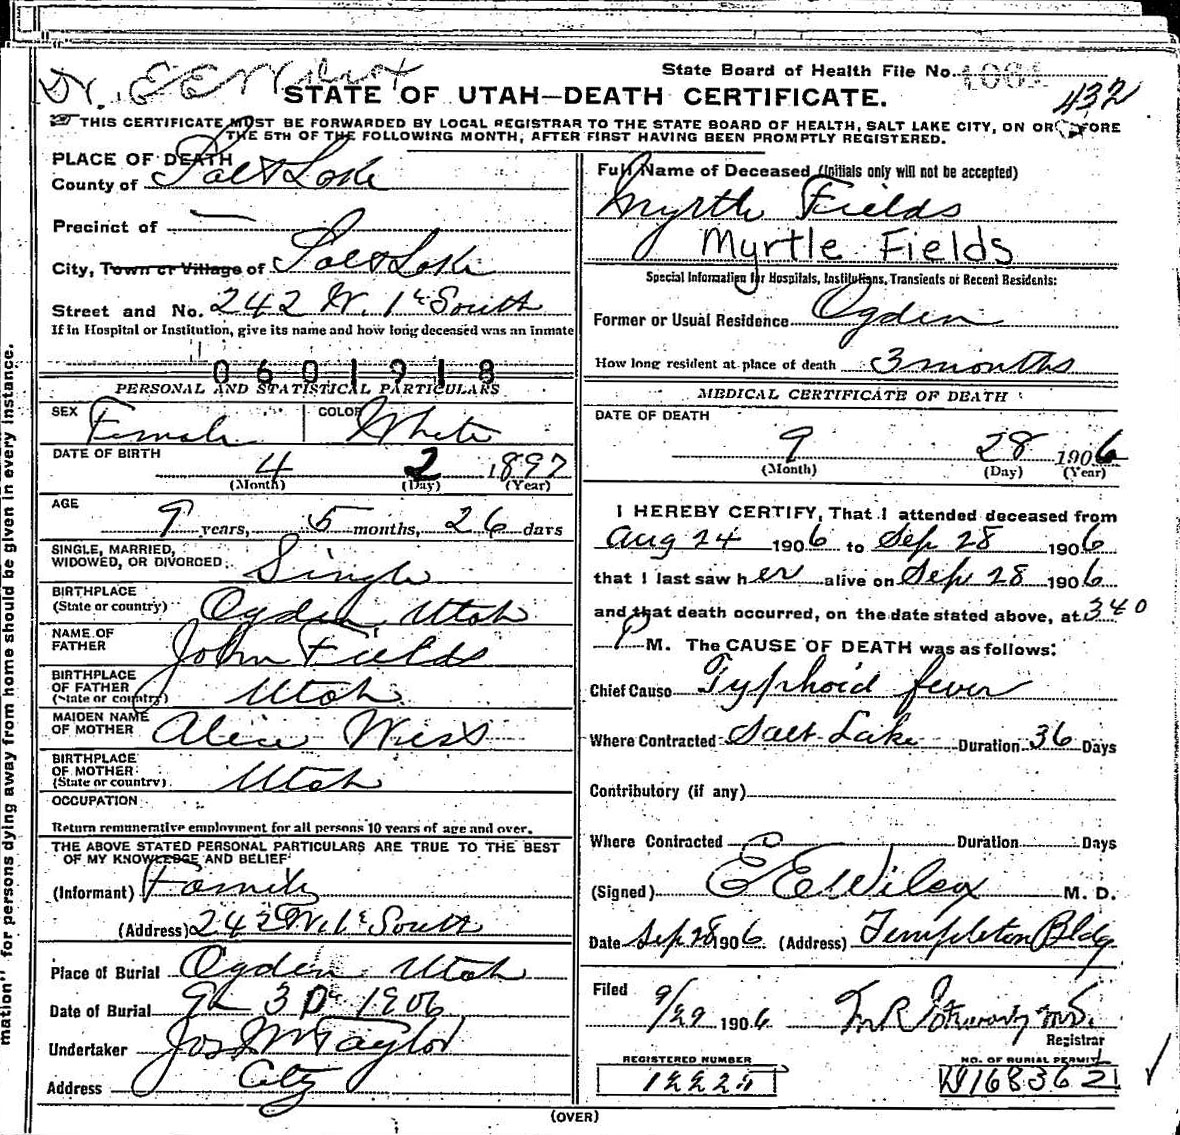 Dr. E E Wilcox
State Board of Health File No.
432
STATE OF UTAH—DEATH CERTIFICATE.
THIS CERTIFICATE MUST BE FORWARDED BY LOCAL REGISTRAR TO THE STATE BOARD OF HEALTH, SALT LAKE CITY, ON OR BEFORE
THE 5TH OF THE FOLLOWING MONTH, AFTER FIRST HAVING BEEN PROMPTLY REGISTERED.
PLACE OF DEATH
County of Salt Lake
Precinct of —
City, Town or Village of Salt Lake
Street and No. 242 W. 1st South
If in Hospital or Institution, give its name and how long deceased was an inmate
0601918
PERSONAL AND STATISTICAL PARTICULARS
SEX Female COLOR White
DATE OF BIRTH 4 2 1897
(Month) (Day) (Year)
AGE 9 years, 5 months, 26 days
SINGLE, MARRIED,
WIDOWED, OR DIVORCED Single
BIRTHPLACE
(State or country) Ogden Utah
NAME OF
FATHER John Fields
BIRTHPLACE
OF FATHER
(State or country) Utah
MAIDEN NAME
OF MOTHER Alice
BIRTHPLACE
OF MOTHER
(State or country) Utah
OCCUPATION
Return remunerative employment for all persons 10 years of age and over.
THE ABOVE STATED PERSONAL PARTICULARS ARE TRUE TO THE BEST
OF MY KNOWLEDGE AND BELIEF
(Informant) Family
(Address) 242 W. 1st South
Place of Burial Ogden Utah
Date of Burial 9 30 1906
Undertaker Jos Wm Taylor
Address City
Full Name of Deceased (Initials only will not be accepted)
Myrtle Fields
Myrtle Fields
Special Information for Hospitals, Institutions, Transients or Recent Residents:
Former or Usual Residence Ogden
How long resident at place of death 3 months
MEDICAL CERTIFICATE OF DEATH
DATE OF DEATH
9 28 1906
(Month) (Day) (Year)
I HEREBY CERTIFY, That I attended deceased from
Aug 24 1906 to Sep 28 1906
that I last saw her alive on Sep 28 1906
and that death occurred, on the date stated above, at 340
P M. The CAUSE OF DEATH was as follows:
Chief Cause Typhoid fever
Where Contracted Salt Lake Duration 36 Days
Contributory (if any)
Where Contracted Duration Days
(Signed) E E Wilcox M. D.
Date Sep 28 1906 (Address) Templeton Bldg.
Filed
9/29 1906
Registrar
REGISTERED NUMBER
NO. OF BURIAL PERMIT
W168362
(OVER)
mation" for persons dying away from home should be given in every instance.